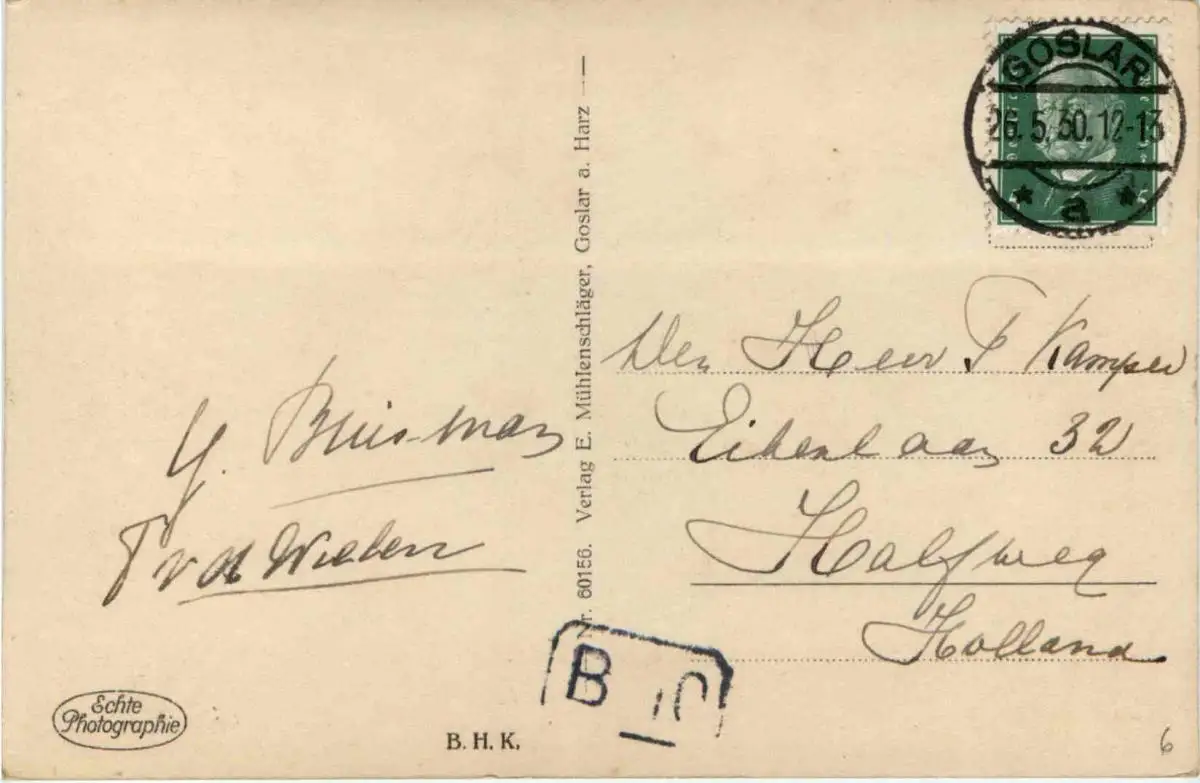 GOSLAR
26.5.30.12-13
* a *
5 5
Den Heer P Kamper
Eikenlaan 32
Halfweg
Holland
G. Buisman
P v d Wielen
Nr. 60156. Verlag E. Mühlenschläger, Goslar a. Harz
Echte
Photographie
B. H. K.
B
10
6